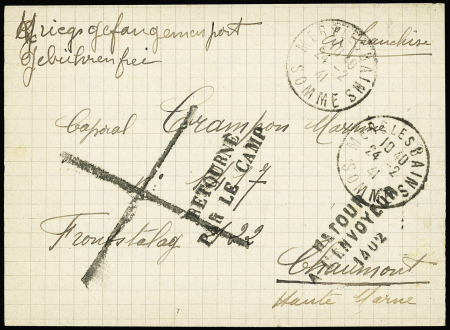 Kriegsgefangenenpost
Gebührenfrei
En franchise
MERS-LES-BAINS
10 40
24 -2
41
SOMME
Caporal Crampon
MERS-LES-BAINS
10 40
24 -2
41
SOMME
RETOURNÉ
PAR LE CAMP
Frontstalag 122
RETOUR
A L'ENVOYEUR
1402
Chaumont
Haute Marne